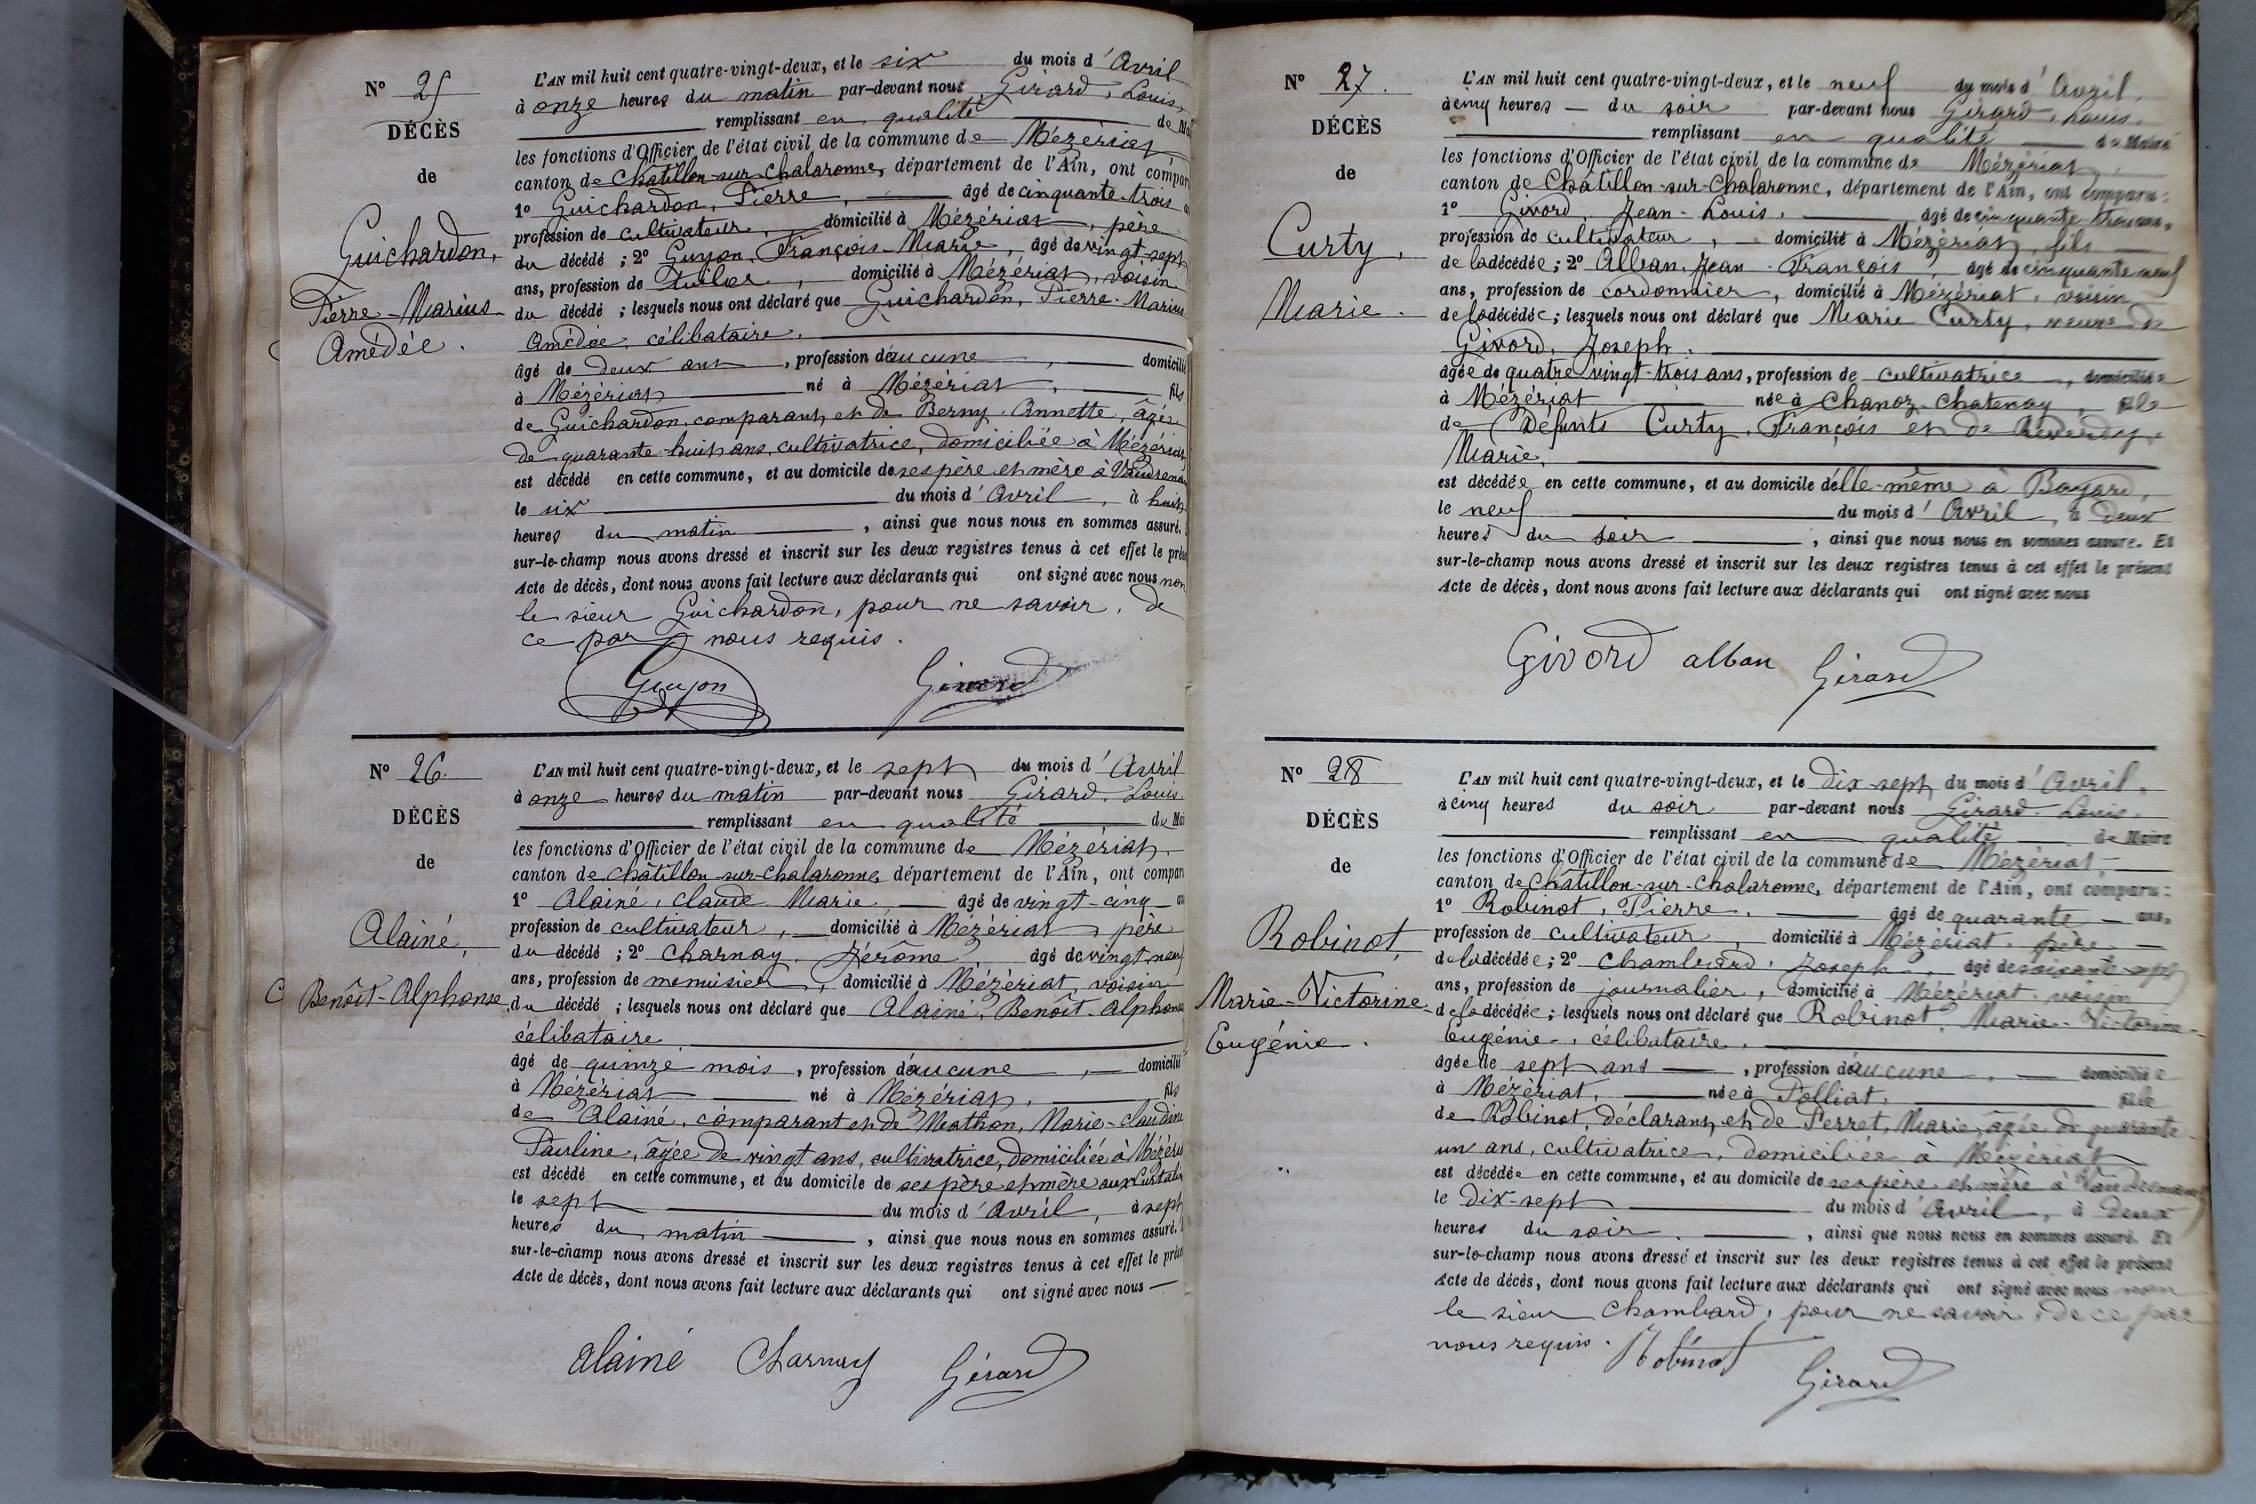 N° 25
DÉCÈS
de
Guichardon,
Pierre-Marius-
Amédée.
L'AN mil huit cent quatre-vingt-deux, et le six du mois d'Avril
à onze heures du matin par-devant nous Girard, Louis,
remplissant en qualité de
les fonctions d'Officier de l'état civil de la commune de Mézériat
canton de Châtillon-sur-Chalaronne, département de l'Ain, ont compar
1° Guichardon, Pierre, âgé de cinquante-trois
profession de cultivateur, domicilié à Mézériat, père
du décédé ; 2° Guyon, François-Marie, âgé de vingt-sept
ans, profession de tuilier, domicilié à Mézériat, voisin
du décédé ; lesquels nous ont déclaré que Guichardon, Pierre-Marius
Amédée, célibataire.
âgé de deux ans, profession d'aucune, domicilié
à Mézériat né à Mézériat, fils
de Guichardon, comparant, et de Berny, Annette, âgée
de quarante-huit ans, cultivatrice, domiciliée à Mézériat
est décédé en cette commune, et au domicile de ses père et mère à
le six du mois d'Avril, à huit
heures du matin, ainsi que nous nous en sommes assuré.
sur-le-champ nous avons dressé et inscrit sur les deux registres tenus à cet effet le
Acte de décès, dont nous avons fait lecture aux déclarants qui ont signé avec nous non
le sieur Guichardon, pour ne savoir, de
ce par nous requis.
Guyon Girard
N° 26.
DÉCÈS
de
Alainé,
C Benoît-Alphonse.
L'AN mil huit cent quatre-vingt-deux, et le sept du mois d'Avril
à onze heures du matin par-devant nous Girard, Louis
remplissant en qualité de
les fonctions d'Officier de l'état civil de la commune de Mézériat
canton de Châtillon-sur-Chalaronne, département de l'Ain, ont compar
1° Alainé, Claude Marie, âgé de vingt-cinq
profession de cultivateur, domicilié à Mézériat, père
du décédé ; 2° Charnay, Jérôme, âgé de vingt neuf
ans, profession de menuisier, domicilié à Mézériat, voisin
du décédé ; lesquels nous ont déclaré que Alainé, Benoît-Alphonse
célibataire
âgé de quinze mois, profession d'aucune, domicilié
à Mézériat né à Mézériat, fils
de Alainé, comparant et de Mathon, Marie-Claudine
Pauline, âgée de vingt ans, cultivatrice, domiciliée à
est décédé en cette commune, et au domicile de ses père et mère aux
le sept du mois d'Avril, à sept
heures du matin, ainsi que nous nous en sommes assuré.
sur-le-champ nous avons dressé et inscrit sur les deux registres tenus à cet effet le
Acte de décès, dont nous avons fait lecture aux déclarants qui ont signé avec nous
alainé Charnay Girard
N° 27.
DÉCÈS
de
Curty,
Marie.
L'AN mil huit cent quatre-vingt-deux, et le neuf du mois d'Avril.
à cinq heures du soir par-devant nous Girard, Louis.
remplissant en qualité de Maire
les fonctions d'Officier de l'état civil de la commune de Mézériat,
canton de Châtillon-sur-Chalaronne, département de l'Ain, ont comparu :
1° Givord, Jean-Louis, âgé de cinquante-trois ans,
profession de cultivateur, domicilié à Mézériat, fils
de la décédée ; 2° Alban, Jean-François, âgé de cinquante neuf
ans, profession de cordonnier, domicilié à Mézériat, voisin
de la décédée ; lesquels nous ont déclaré que Marie Curty, veuve de
Givord, Joseph.
âgée de quatre vingt-trois ans, profession de cultivatrice, domiciliée
à Mézériat née à Chanoz-Chatenay, fille
de Défunts Curty, François et de
Marie,
est décédée en cette commune, et au domicile d'elle-même à Bayard,
le neuf du mois d'Avril, à deux
heures du soir, ainsi que nous nous en sommes assuré. Et
sur-le-champ nous avons dressé et inscrit sur les deux registres tenus à cet effet le présent
Acte de décès, dont nous avons fait lecture aux déclarants qui ont signé avec nous
Givord alban Girard
N° 28
DÉCÈS
de
Robinot,
Marie-Victorine-
Eugénie.
L'AN mil huit cent quatre-vingt-deux, et le Dix-sept du mois d'Avril.
à cinq heures du soir par-devant nous Girard, Louis.
remplissant en qualité de Maire
les fonctions d'Officier de l'état civil de la commune de Mézériat
canton de Châtillon-sur-Chalaronne, département de l'Ain, ont comparu :
1° Robinot, Pierre, âgé de quarante ans,
profession de cultivateur, domicilié à Mézériat, père
de la décédée ; 2° Chambard, Joseph, âgé de soixante-sept
ans, profession de journalier, domicilié à Mézériat, voisin
de la décédée ; lesquels nous ont déclaré que Robinot, Marie-Victorine-
Eugénie, célibataire.
âgée de sept ans, profession d'aucune, domiciliée
à Mézériat, née à Polliat, fille
de Robinot, déclarant, et de Perret, Marie, âgée de quarante
un ans, cultivatrice, domiciliée à Mézériat
est décédée en cette commune, et au domicile de ses père et mère à
le Dix-sept du mois d'Avril, à deux
heures du soir, ainsi que nous nous en sommes assuré. Et
sur-le-champ nous avons dressé et inscrit sur les deux registres tenus à cet effet le présent
Acte de décès, dont nous avons fait lecture aux déclarants qui ont signé avec nous non
le sieur Chambard, pour ne savoir, de ce par
nous requis. Robinot
Girard